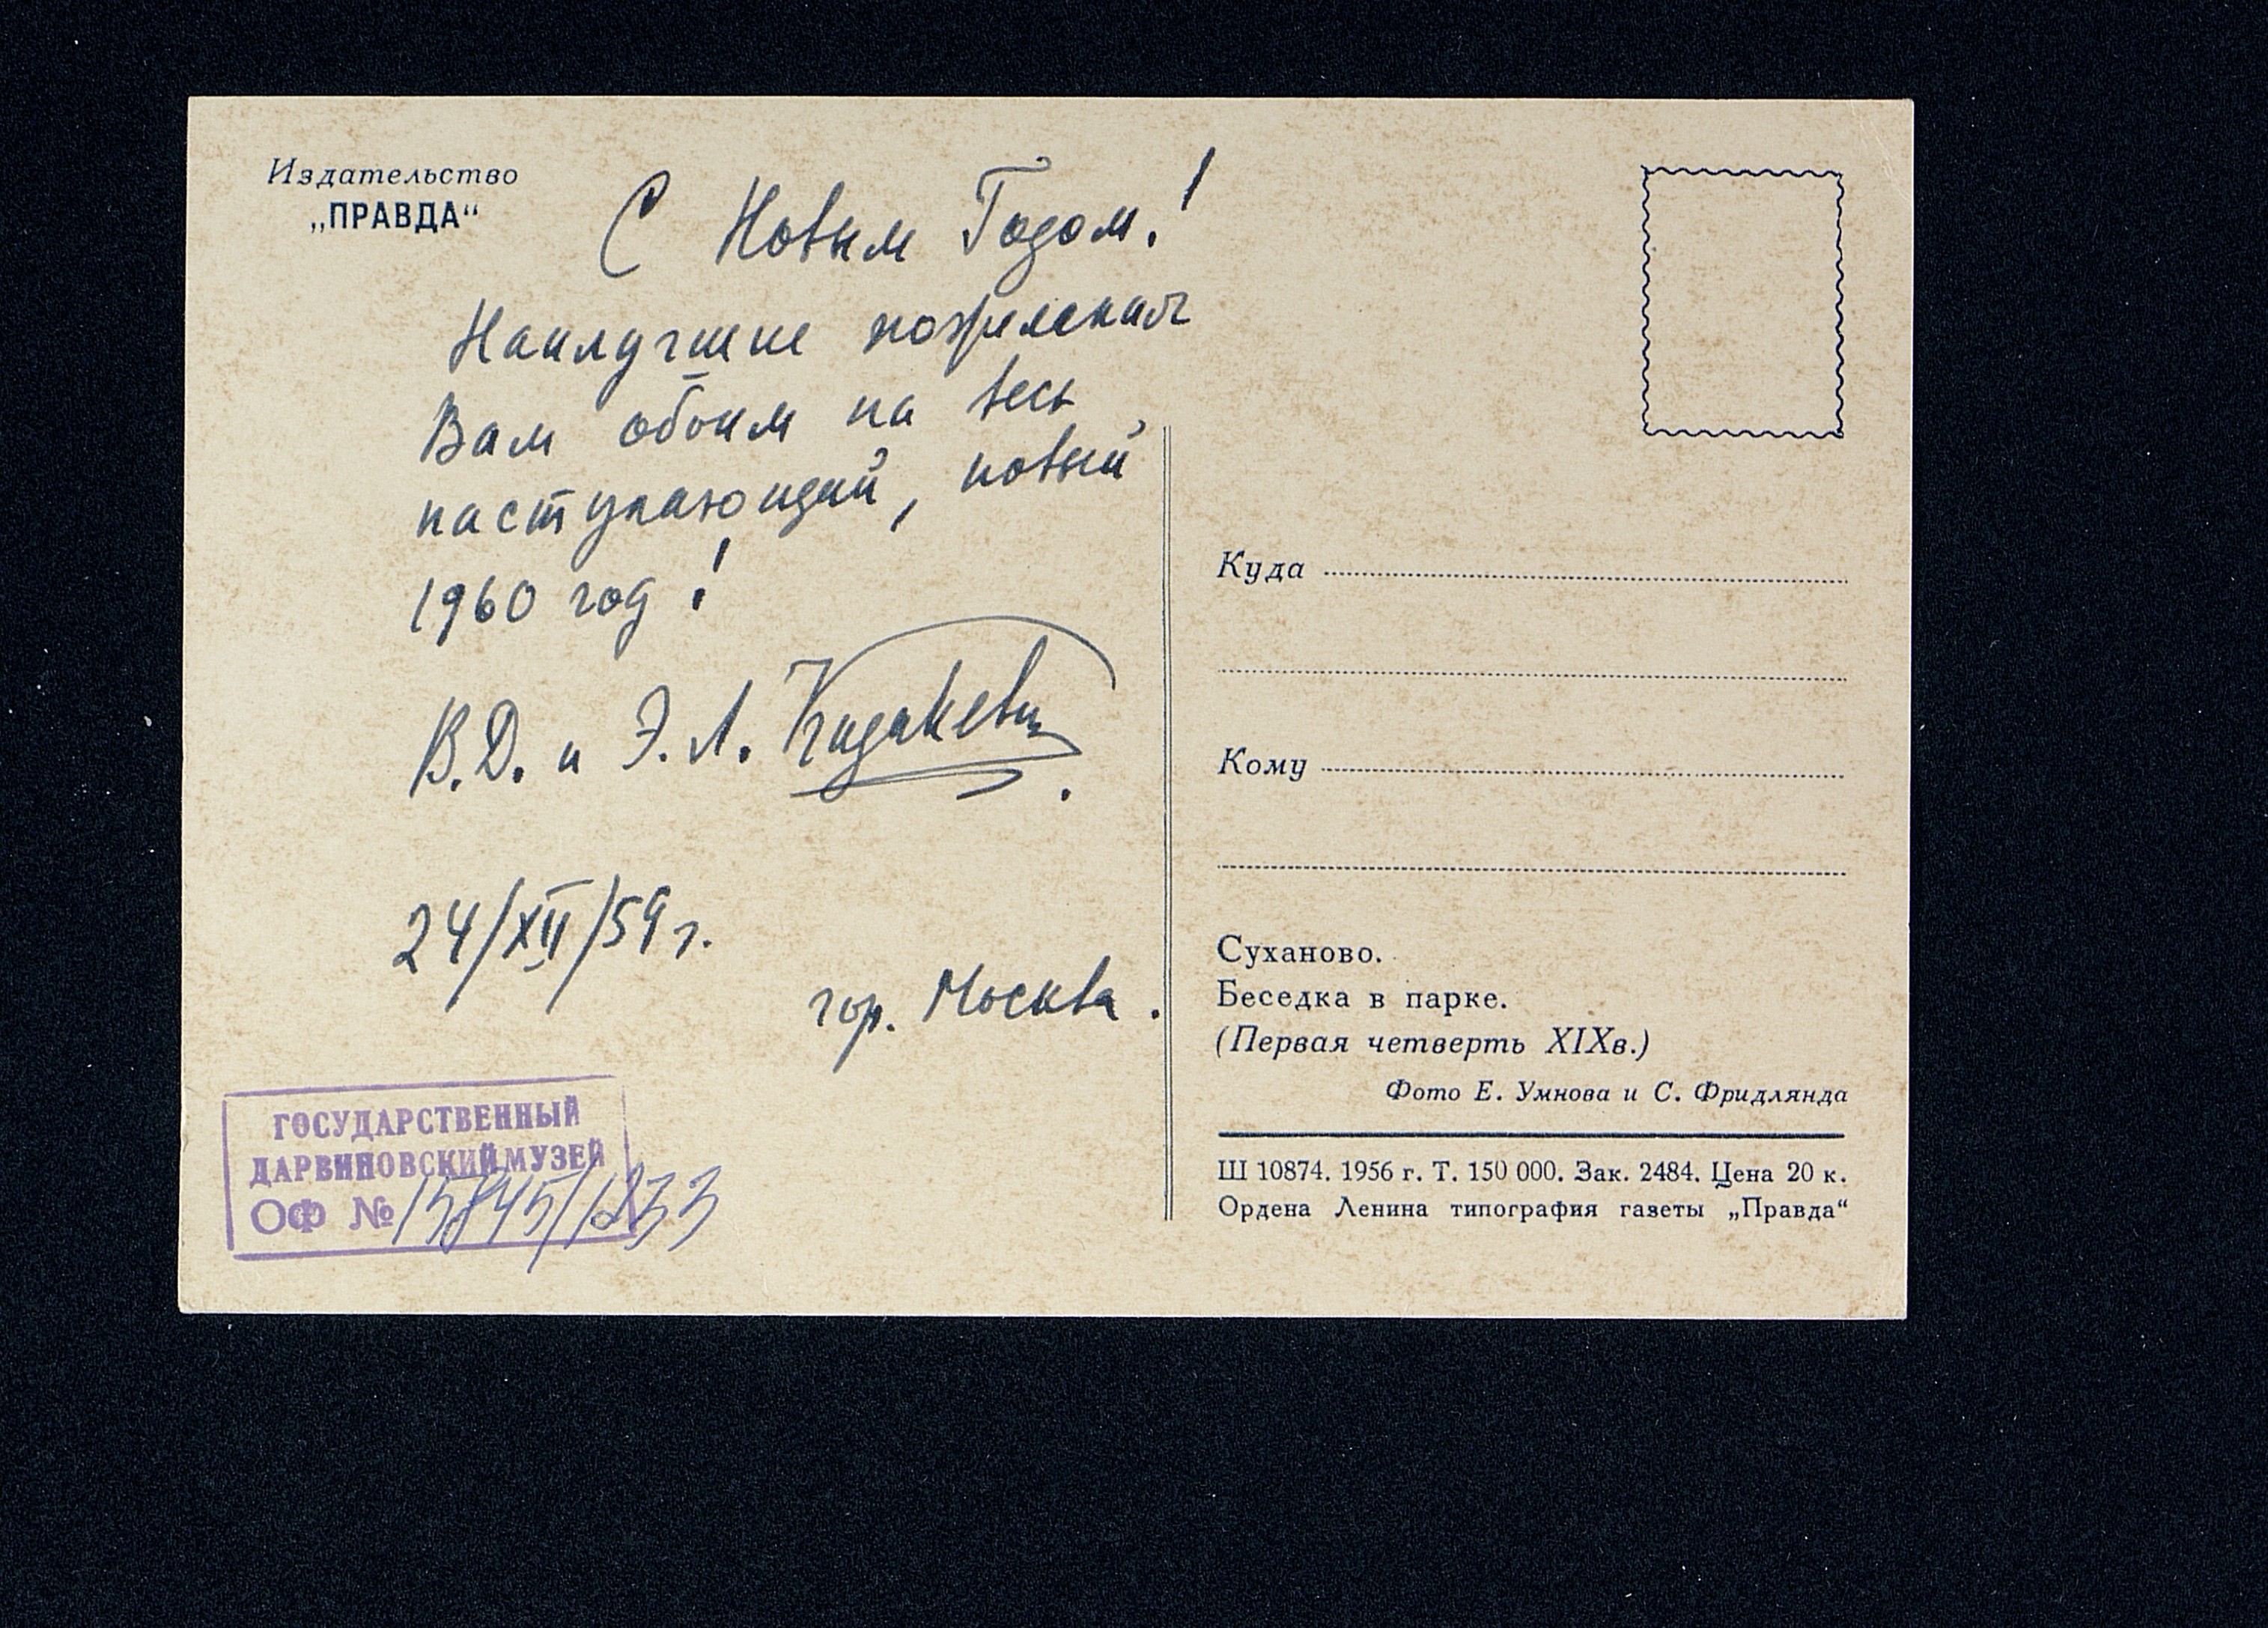 Издательство
„ПРАВДА“
С Новым Годом!
Наилучшие пожелания
Вам обоим на весь
наступающий, новый
1960 год!
В.Д. и Э.Л.
24/XII/59 г.
гор. Москва.
ГОСУДАРСТВЕННЫЙ
ДАРВИНОВСКИЙ МУЗЕЙ
ОФ № 15845/1233
Куда
Кому
Суханово.
Беседка в парке.
(Первая четверть XIXв.)
Фото Е. Умнова и С. Фридлянда
Ш 10874. 1956 г. Т. 150 000. Зак. 2484. Цена 20 к.
Ордена Ленина типография газеты „Правда“